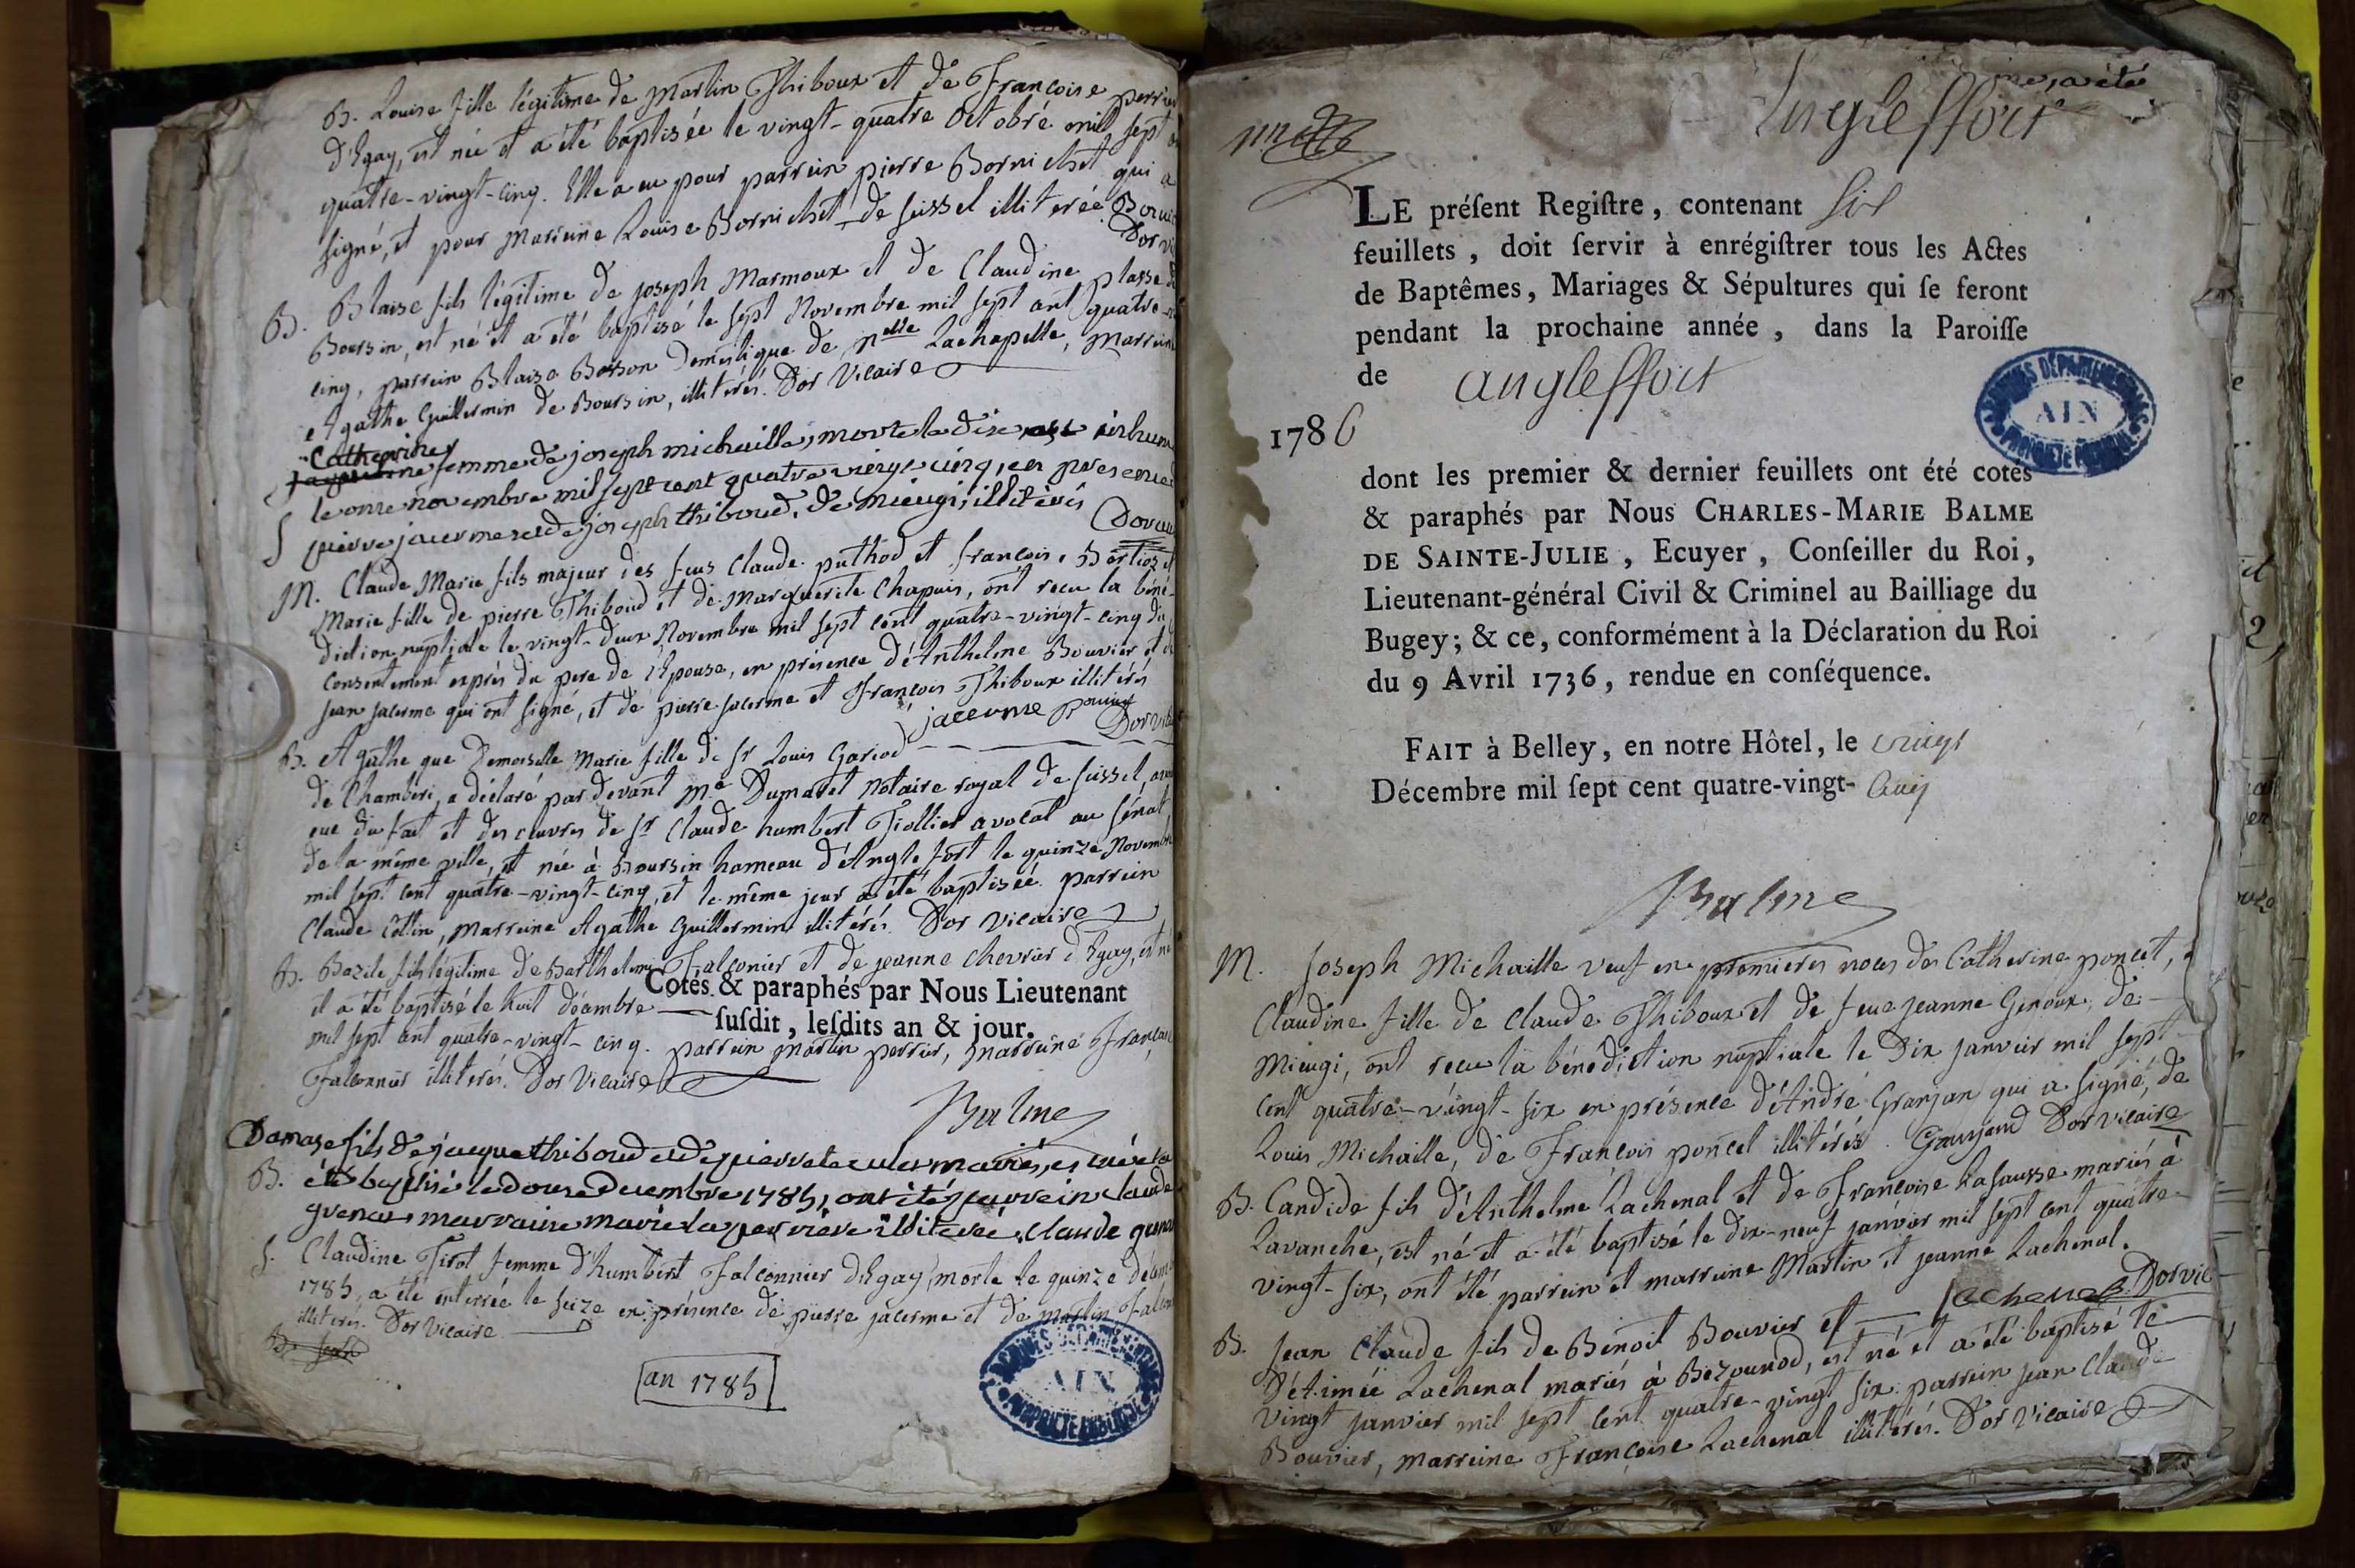 B. Louise fille légitime de Martin Thiboux et de Francoise perrier
d'Egay, est née et a été baptisée le vingt-quatre Octobre mil sept
quatre-vingt-cinq. Elle a eu pour parrein pierre Bornichet qui a
signé, et pour Marreine Louise Bornichet de seissel illiterée
Dor vic
B. Blaise fils légitime de joseph Marmoux et de Claudine plasse
Boursin, est né et a été baptisé le sept Novembre mil sept cent quatre-
cinq, parrein Blaise Bosson Domestique de Lachapelle, Marreine
Agathe Guillermin de Boursin, illiterés. Dor Vicaire
Catherine
femme de joseph michaille, morte le dix
le onze novembre mil sept cent quatre vingt cinq, en presence
S pierre jacerme et de joseph thiboud, de mieugi, illiterés
M. Claude Marie fils majeur des feus Claude puthod et francoise Bertioz et
Marie fille de pierre Thiboud et de Marguerite Chapuis, ont recu la béné-
diction nuptiale le vingt-deux Novembre mil sept cent quatre-vingt-cinq du
consentement exprès du pere de l'Epouse, en présence d'Anthelme Bouvier et de
jean jacerme qui ont signé, et de pierre jacerme et François Thiboux illiterés
jacerme Dor vic
B. Agathe que Demoiselle Marie fille de Sr Louis Gariod
de Chamberi, a déclaré par devant Me Dumaret Notaire royal de seissel,
du fait et des œuvres de Sr Claude humbert Fiollier avocat au sénat
de la même ville, est née à Boursin hameau d'Anglefort le quinze Novembre
mil sept cent quatre-vingt-cinq, et le même jour a été baptisée. parrein
Claude Collin, Marreine Agathe Guillermin illitérés. Dor Vicaire
B. Bazile fils légitime de Barthelemi Falconier et de jeanne Chevrier d'Egay, est né
il a été baptisé le huit décembre
Cotés & paraphés par Nous Lieutenant
susdit, lesdits an & jour.
mil sept cent quatre-vingt-cinq. parrein Martin perrier, Marreine
Falconnier illiterés. Dor Vicaire
Balme
Damase fils de jacque thiboud et de pierrete mariés, est né et a
B. été baptisé le douze decembre 1785, ont été parrein claude
grenar marraine marie illiterée. claude
S. Claudine Tirot femme d'humbert Falconnier d'Egay, morte le quinze décem
1785, a été enterrée le seize en présence de pierre jacerme et de martin
illiterés. Dor Vicaire
an 1785
ARCHIVES DÉPARTEMENTALES
AIN
Angleffort
LE préſent Regiſtre, contenant six
feuillets, doit ſervir à enrégiſtrer tous les Actes
de Baptêmes, Mariages & Sépultures qui ſe feront
pendant la prochaine année, dans la Paroiſſe
de angleffort
1786
ARCHIVES DÉPARTEMENTALES
AIN
dont les premier & dernier feuillets ont été cotés
& paraphés par Nous CHARLES-MARIE BALME
DE SAINTE-JULIE, Ecuyer, Conſeiller du Roi,
Lieutenant-général Civil & Criminel au Bailliage du
Bugey; & ce, conformément à la Déclaration du Roi
du 9 Avril 1736, rendue en conſéquence.
FAIT à Belley, en notre Hôtel, le vingt
Décembre mil ſept cent quatre-vingt- cinq
Balme
M. Joseph Michaille veuf en premieres noces de Catherine poncet,
Claudine fille de Claude Thiboux et de feue jeanne Genoux, de
Mieugi, ont recu la bénédiction nuptiale le dix janvier mil sept
cent quatre-vingt-six en présence d'André Granjan qui a signé, de
Louis Michaille, de François poncet illitérés. Granjand Dor vicaire
B. Candide fils d'Anthelme Lachenal et de Françoise Lafausse mariés à
Lavanche, est né et a été baptisé le dix-neuf janvier mil sept cent quatre-
vingt-six, ont été parrein et marreine Martin et jeanne Lachenal.
Lachenal. Dor vic
B. jean Claude fils de Benoit Bouvier et
d'Aimée Lachenal mariés à Bezounod, est né et a été baptisé le
vingt janvier mil sept cent quatre-vingt six. parrein jean Claude
Bouvier, marreine Françoise Lachenal illiterés. Dor Vicaire